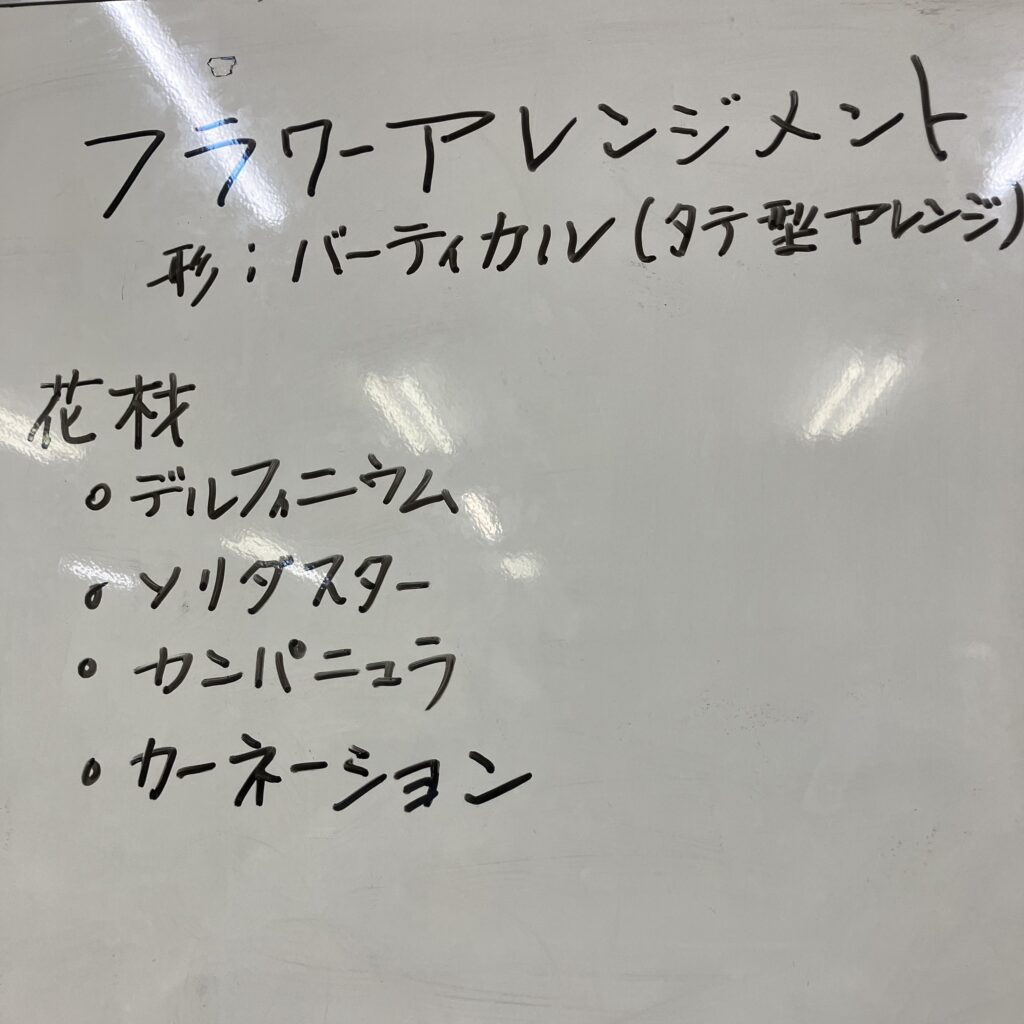 フラワーアレンジメント
形：バーティカル(タテ型アレンジ)
花材
○デルフィニウム
○ソリダスター
○カンパニュラ
○カーネーション